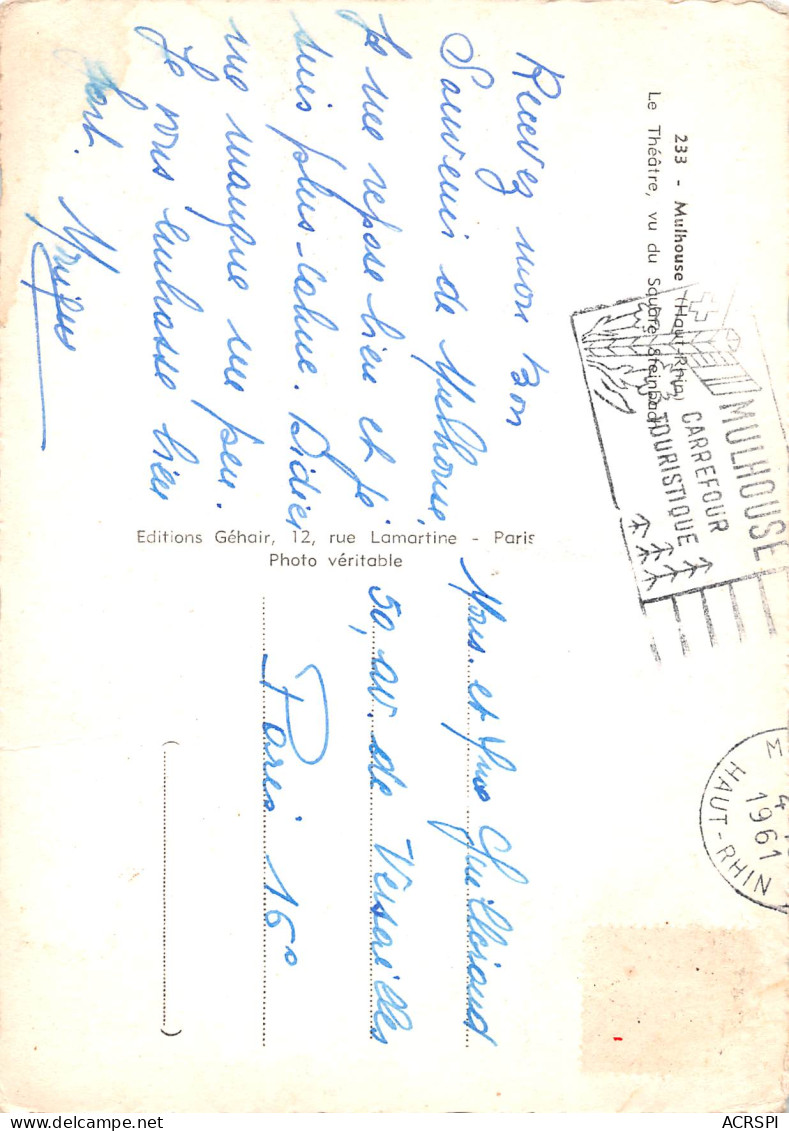 233 - Mulhouse (Haut-Rhin)
Le Théâtre, vu du Square Steinbach
Recevez mon bon
Souvenir de Mulhouse,
Je me repose bien et je
suis plus calme. Didier
me manque un peu.
Je vous embrasse bien
fort.
Editions Géhair, 12, rue Lamartine - Paris
Photo véritable
MULHOUSE
CARREFOUR
TOURISTIQUE
M
4
1961
HAUT-RHIN
Mons. et Mme
50, av. de Versailles
Paris 16e
ACRSPI